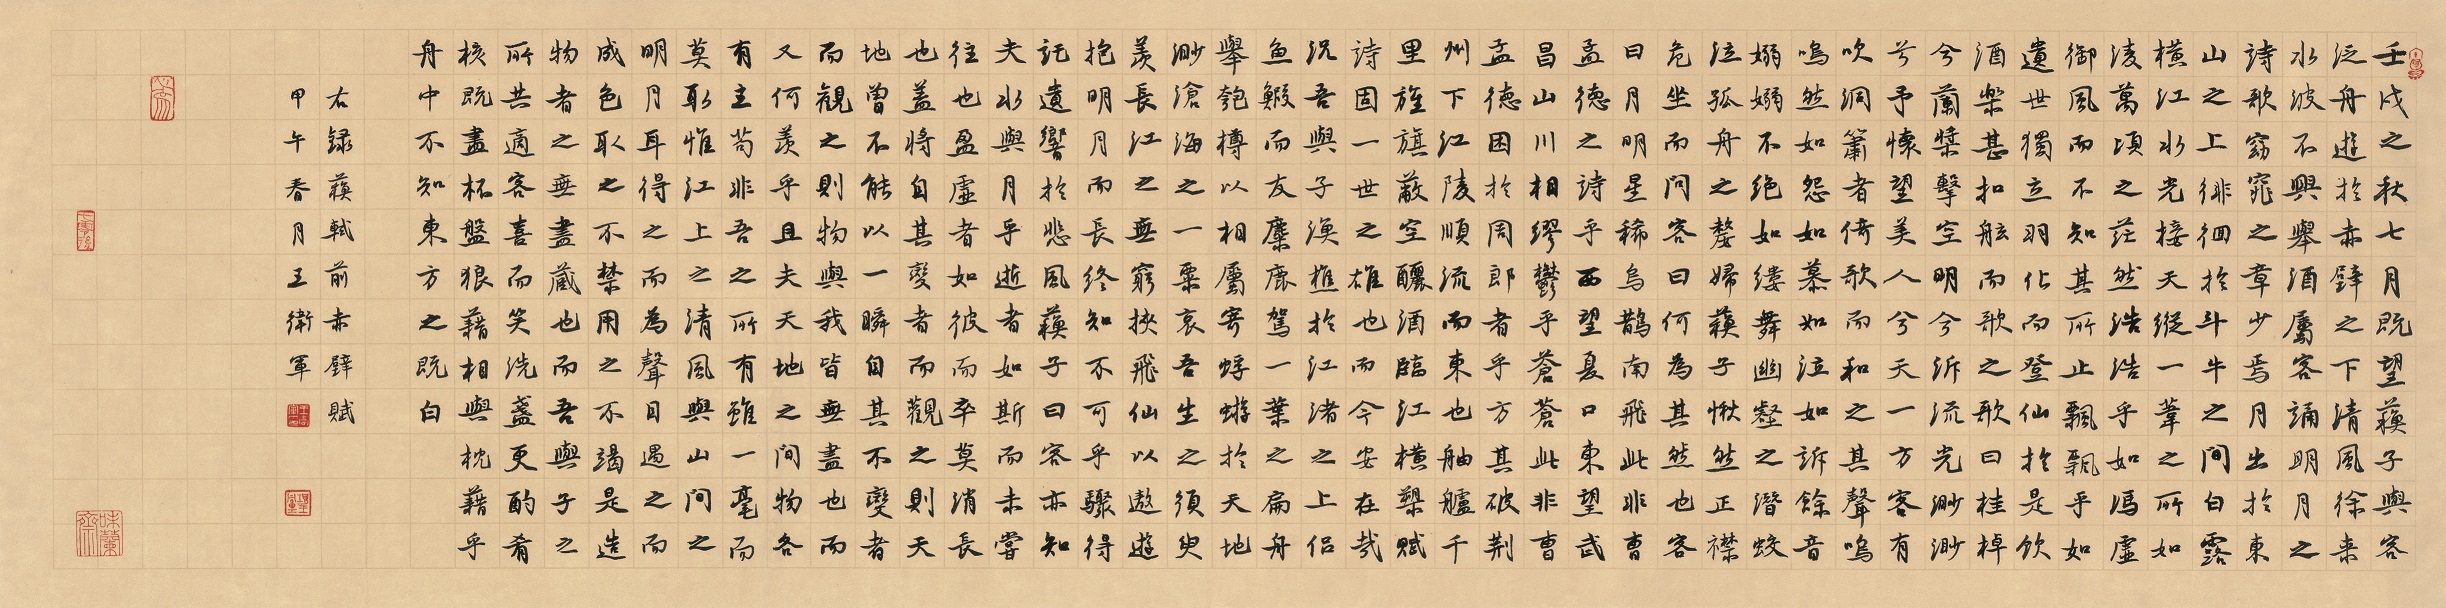 壬戌之秋七月既望蘇子與客
泛舟遊於赤壁之下清風徐来
水波不興舉酒屬客誦明月之
詩歌窈窕之章少焉月出於東
山之上徘徊於斗牛之間白露
橫江水光接天縱一葦之所如
凌萬頃之茫然浩浩乎如馮虛
御風而不知其所止飄飄乎如
遺世獨立羽化而登仙於是飲
酒樂甚扣舷而歌之歌曰桂棹
兮蘭槳擊空明兮泝流光渺渺
兮予懷望美人兮天一方客有
吹洞簫者倚歌而和之其聲嗚
嗚然如怨如慕如泣如訴餘音
嫋嫋不絕如縷舞幽壑之潛蛟
泣孤舟之嫠婦蘇子愀然正襟
危坐而問客曰何為其然也客
曰月明星稀烏鵲南飛此非曹
孟德之詩乎西望夏口東望武
昌山川相繆鬱乎蒼蒼此非曹
孟德困於周郎者乎方其破荆
州下江陵順流而東也舳艫千
里旌旗蔽空釃酒臨江橫槊賦
詩固一世之雄也而今安在哉
況吾與子漁樵於江渚之上侶
魚鰕而友麋鹿駕一葉之扁舟
舉匏樽以相屬寄蜉蝣於天地
渺滄海之一粟哀吾生之須臾
羨長江之無窮挾飛仙以遨遊
抱明月而長終知不可乎驟得
託遺響於悲風蘇子曰客亦知
夫水與月乎逝者如斯而未嘗
往也盈虛者如彼而卒莫消長
也蓋將自其變者而觀之則天
地曾不能以一瞬自其不變者
而觀之則物與我皆無盡也而
又何羨乎且夫天地之間物各
有主苟非吾之所有雖一毫而
莫取惟江上之清風與山間之
明月耳得之而為聲目遇之而
成色取之不禁用之不竭是造
物者之無盡藏也而吾與子之
所共適客喜而笑洗盞更酌肴
核既盡杯盤狼藉相與枕藉乎
舟中不知東方之既白
右録蘇軾前赤壁賦
甲午春月王衛軍
味蘭齋